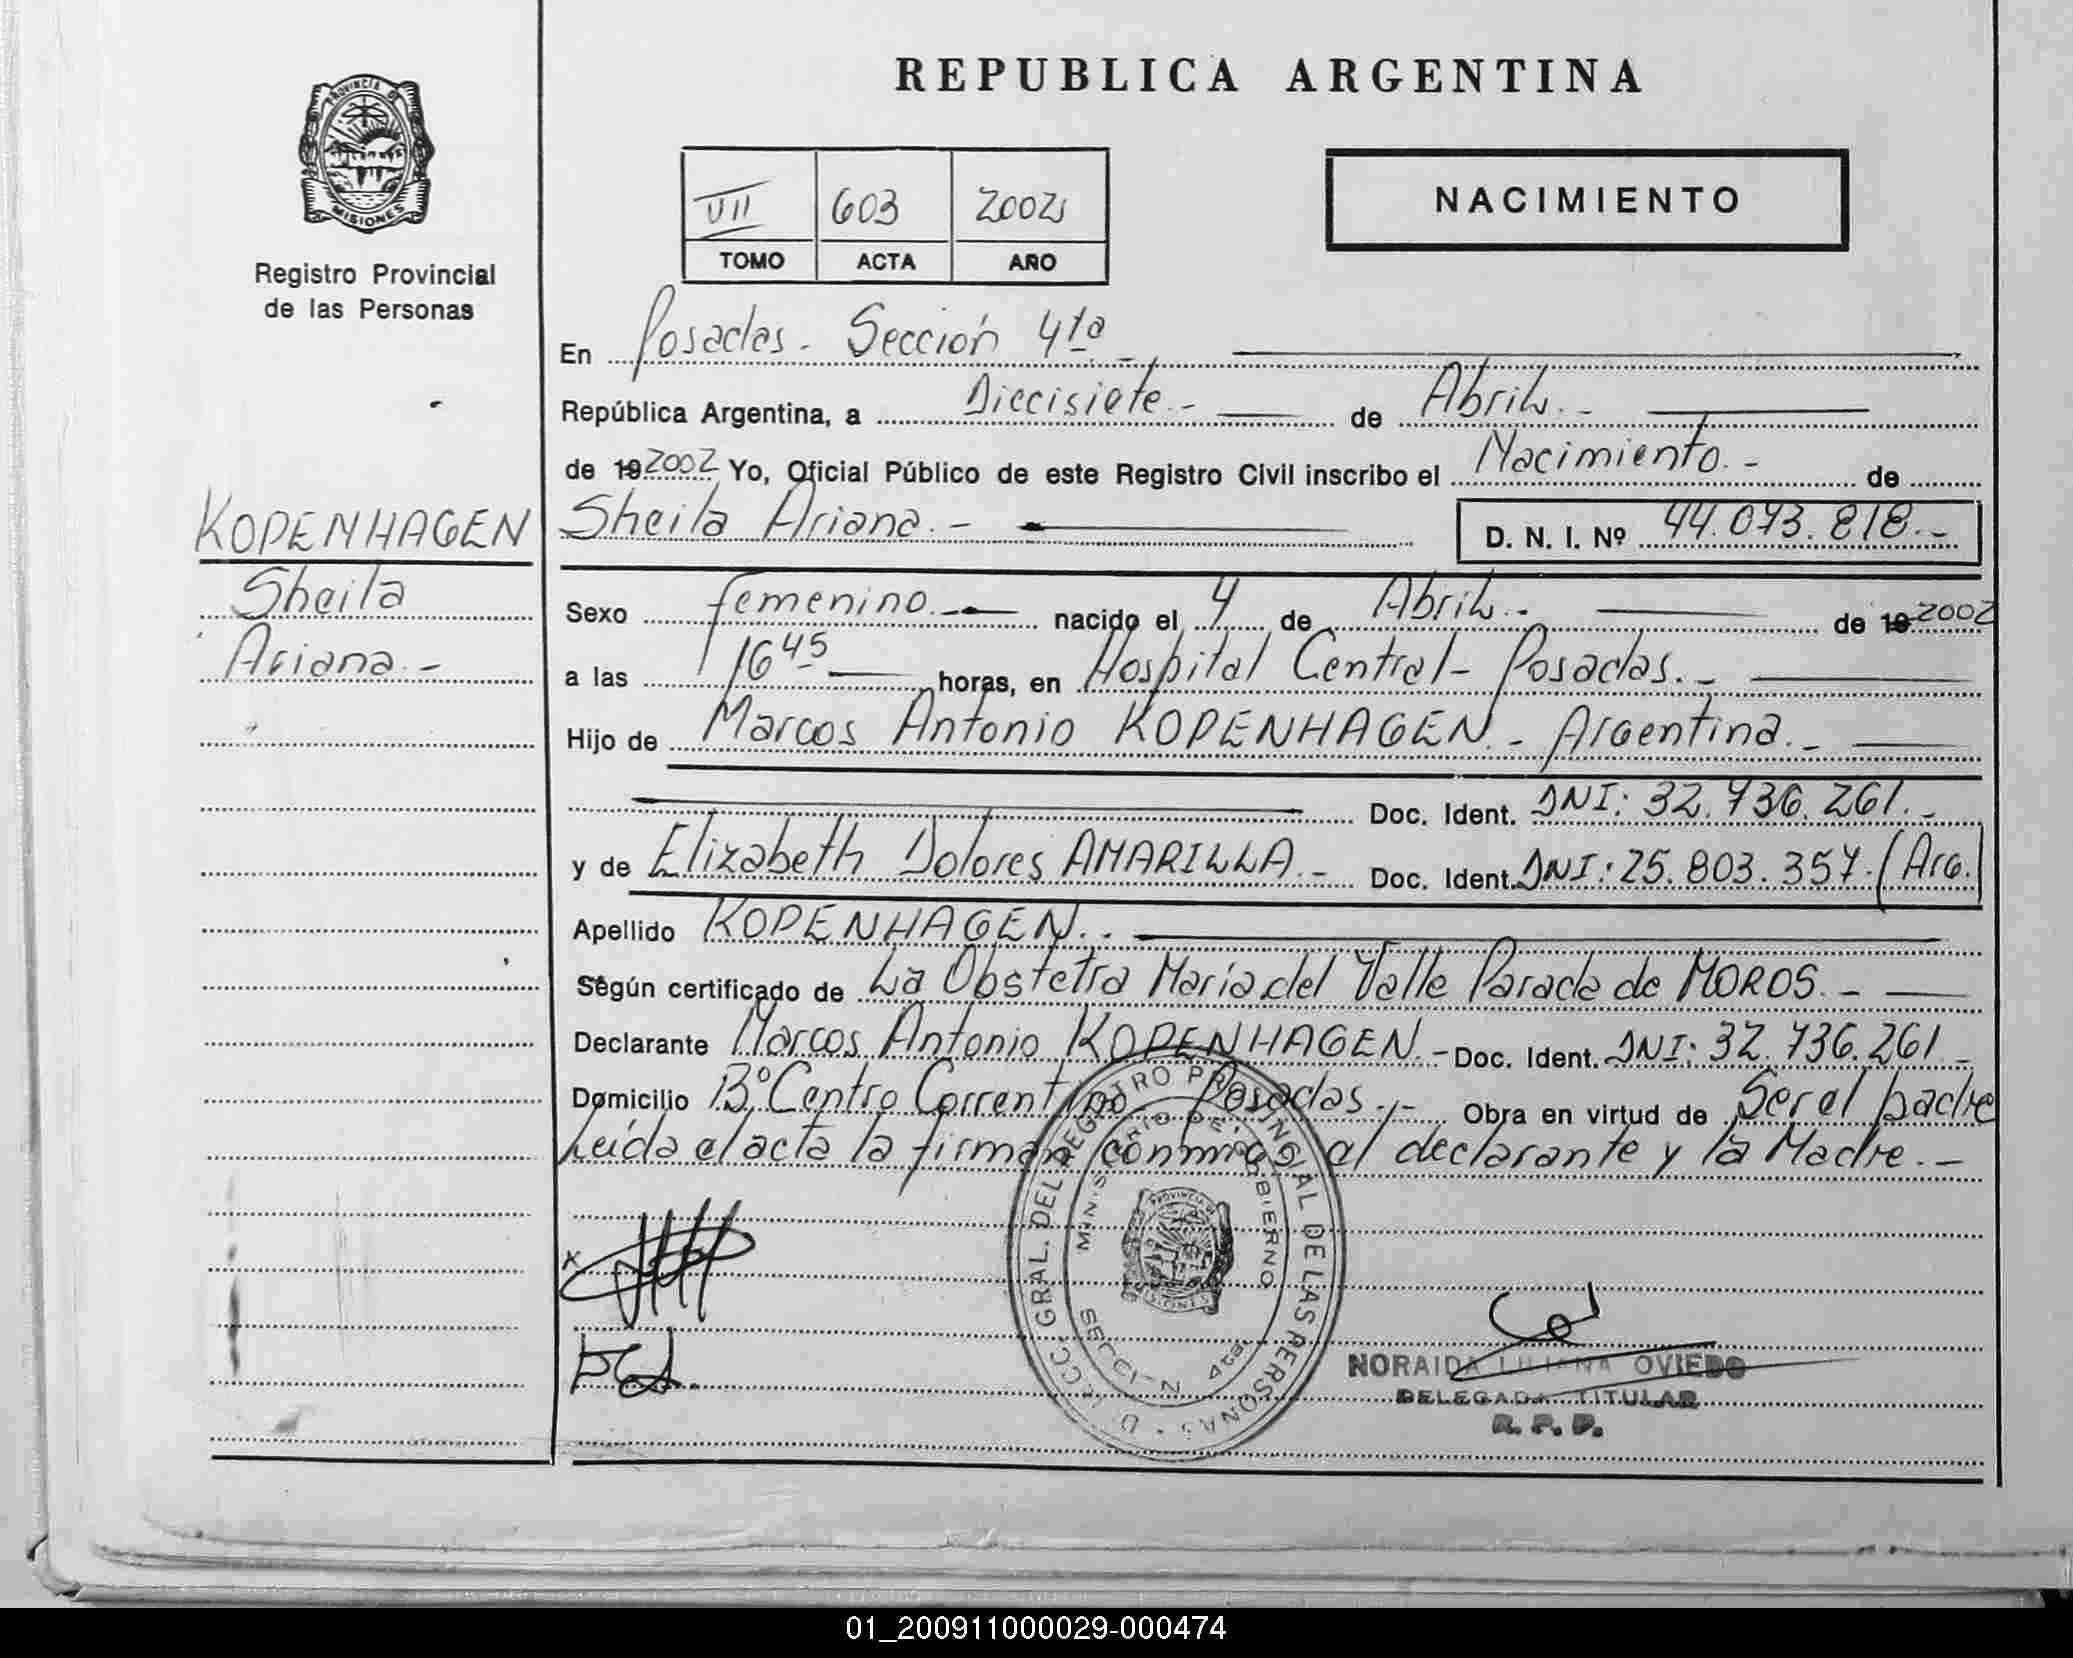 REPUBLICA ARGENTINA
PROVINCIA DE
MISIONES
Registro Provincial
de las Personas
VII 603 2002
TOMO ACTA AÑO
NACIMIENTO
En Posadas - Sección 4ta -
República Argentina, a Diecisiete.- de Abril.-
de 19 2002 Yo, Oficial Público de este Registro Civil inscribo el Nacimiento.- de
KOPENHAGEN
Sheila
Ariana.-
Sheila Ariana.- D. N. I. Nº 44.073.818.-
Sexo femenino.- nacido el 4 de Abril.- de 19 2002
a las 16 45 horas, en Hospital Central - Posadas.-
Hijo de Marcos Antonio KOPENHAGEN.- Argentina.-
Doc. Ident. DNI: 32.736.261.-
y de Elizabeth Dolores AMARILLA.- Doc. Ident. DNI: 25.803.357.(Arg.)
Apellido KOPENHAGEN.-
Según certificado de La Obstetra María del Valle Parada de MOROS.-
Declarante Marcos Antonio KOPENHAGEN.- Doc. Ident. DNI: 32.736.261.-
Domicilio Bº Centro Correntino Posadas.- Obra en virtud de Ser el padre
Leída el acta la firman conmigo el declarante y la Madre.-
GRAL. DEL REGISTRO PROVINCIAL DE LAS PERSONAS
MINISTERIO DE GOBIERNO
PROVINCIA DE
MISIONES
NORAIDA LILIANA OVIEDO
DELEGADA TITULAR
R. P. P.
01_200911000029-000474